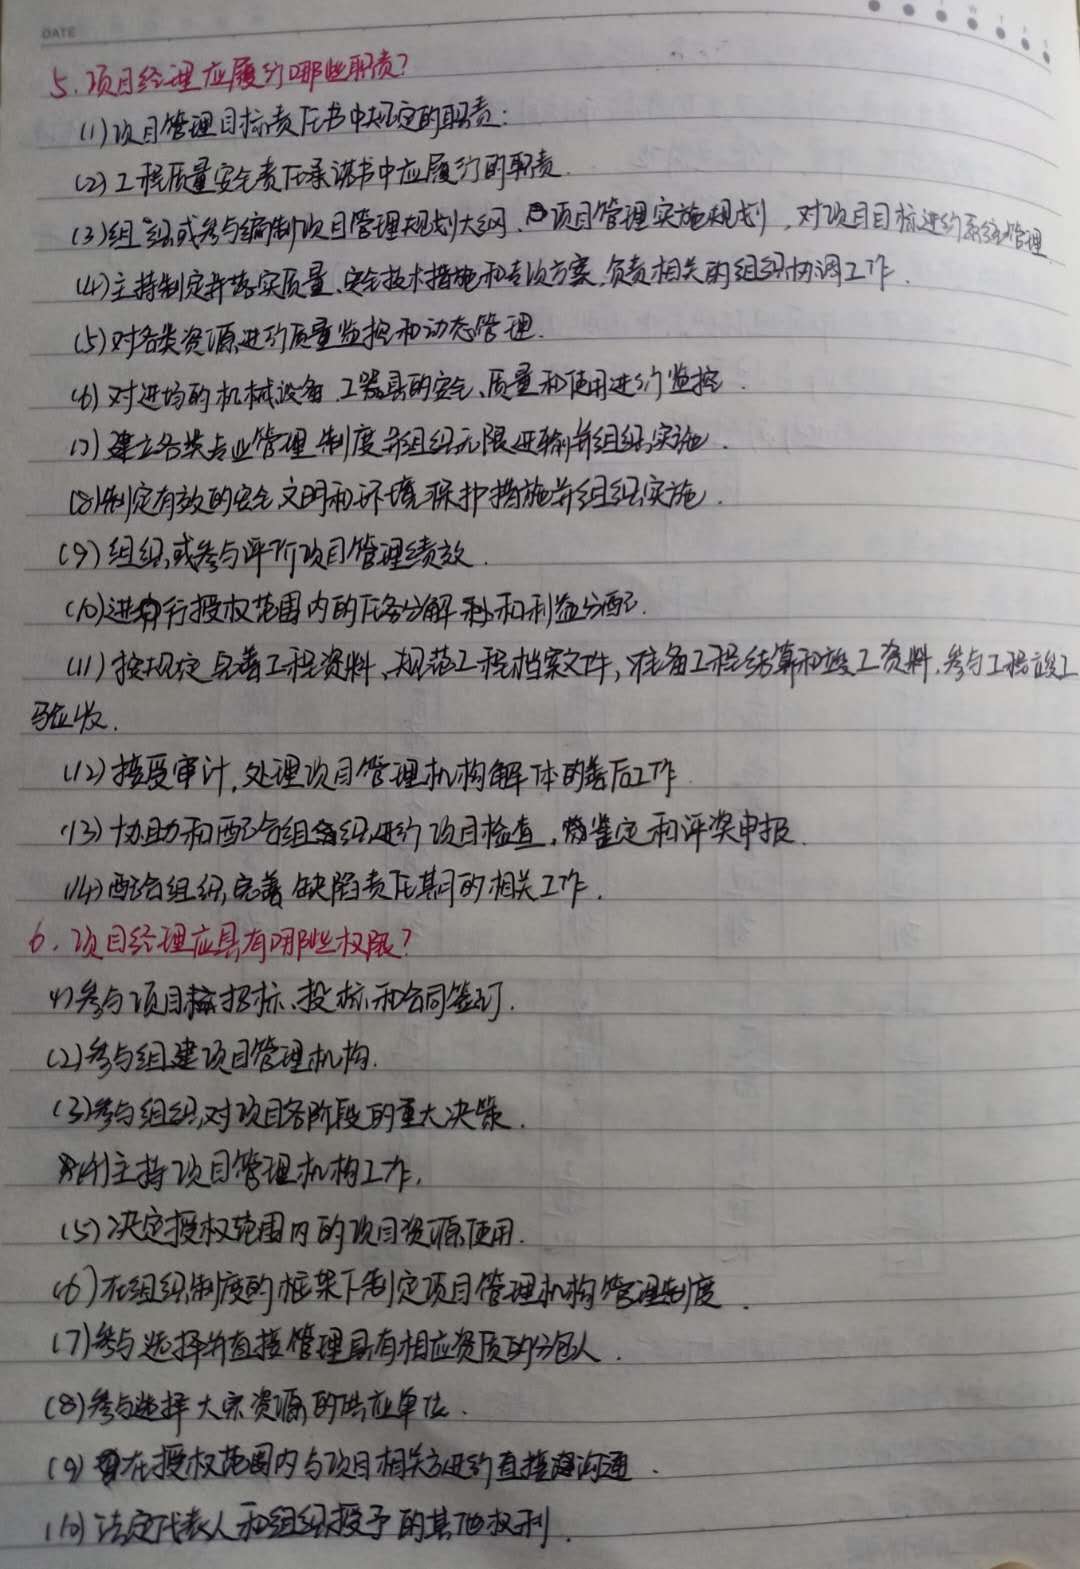 DATE
5、项目经理应履行哪些职责？
(1)项目管理目标责任书中规定的职责：
(2)工程质量安全责任承诺书中应履行的职责.
(3)组织或参与编制项目管理规划大纲、项目管理实施规划，对项目目标进行系统管理
(4)主持制定并落实质量、安全技术措施和专项方案，负责相关的组织协调工作.
(5)对各类资源进行质量监控和动态管理.
(6)对进场的机械设备、工器具的安全、质量和使用进行监控.
(7)建立各类专业管理制度并组织实施.
(8)制定有效的安全、文明和环境保护措施并组织实施.
(9)组织或参与评价项目管理绩效.
(10)进行授权范围内的任务分解和利益分配.
(11)按规定完善工程资料、规范工程档案文件，准备工程结算和竣工资料，参与工程竣工
验收.
(12)接受审计，处理项目管理机构解体的善后工作
(13)协助和配合组织进行项目检查，鉴定和评奖申报.
(14)配合组织完善缺陷责任期的相关工作.
6、项目经理应具有哪些权限？
(1)参与项目招标、投标和合同签订.
(2)参与组建项目管理机构.
(3)参与组织对项目各阶段的重大决策.
(4)主持项目管理机构工作.
(5)决定授权范围内的项目资源使用.
(6)在组织制度的框架下制定项目管理机构管理制度.
(7)参与选择并直接管理具有相应资质的分包人.
(8)参与选择大宗资源的供应单位.
(9)在授权范围内与项目相关方进行直接沟通.
(10)法定代表人和组织授予的其他权利.